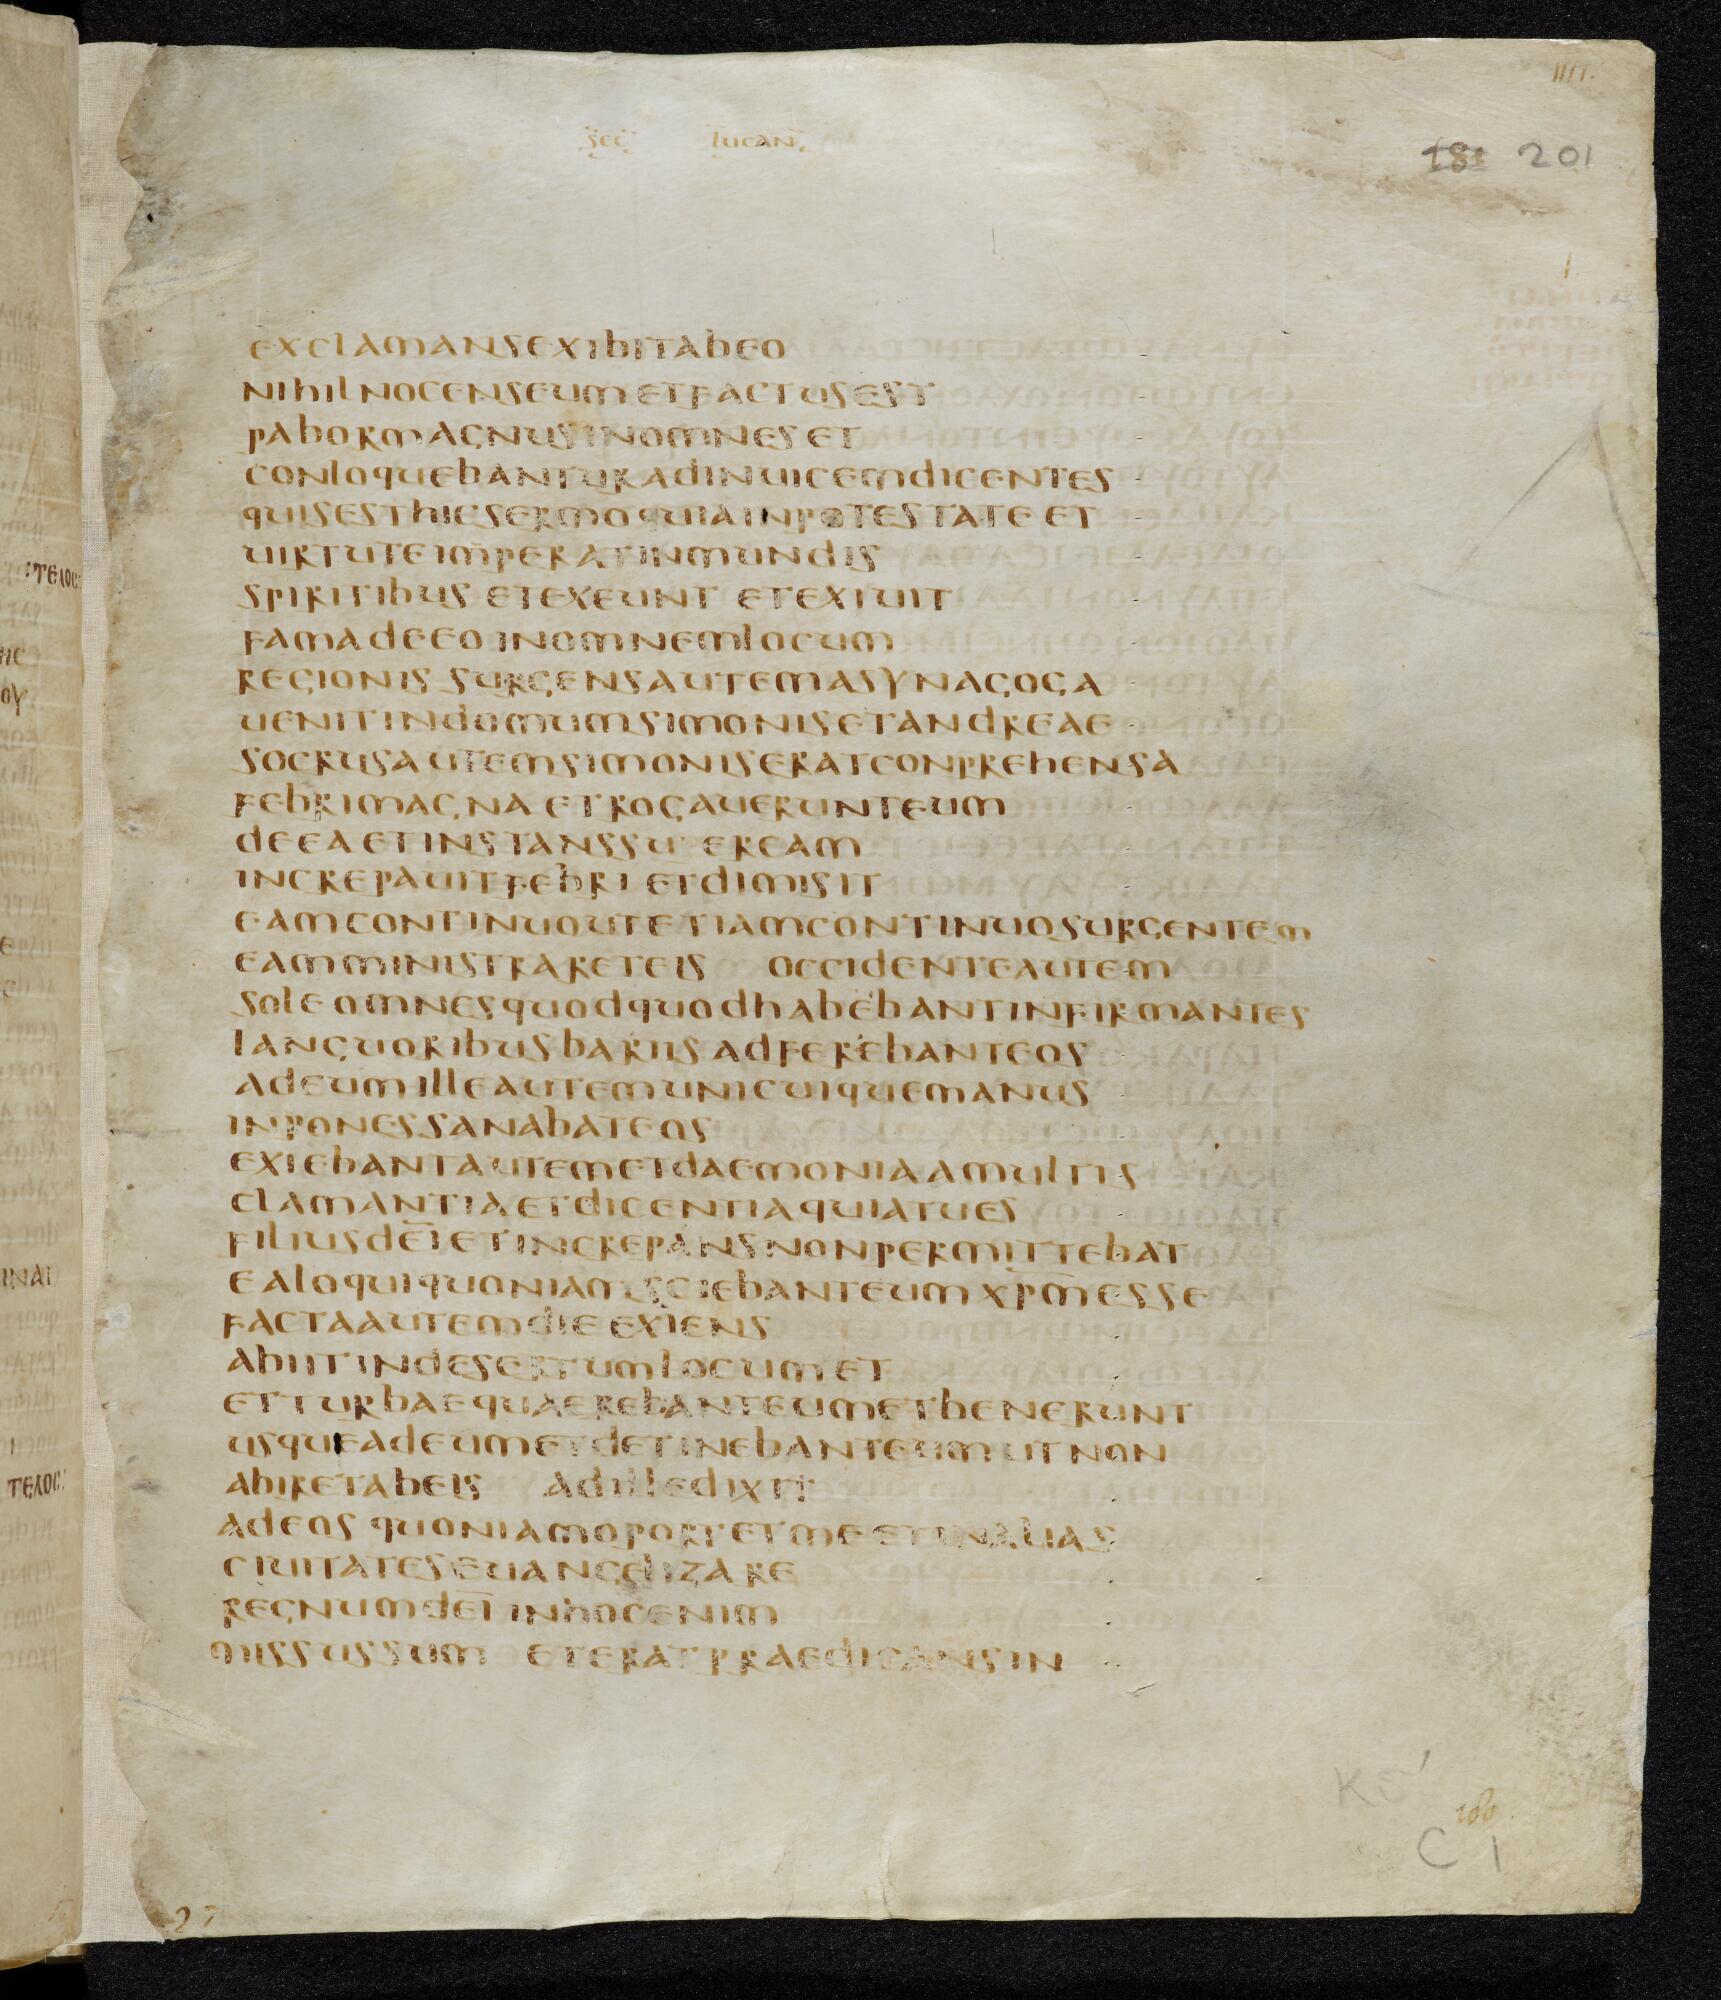 IIII.
sec lucan,
181 201
exclamansexibitabeo
nihilnocenseumetfactusest
pabormagnusinomneset
conloquebanturadinuicemdicentes
quisesthicsermoquiainpotestate et
uirtuteimperatinmundis
spiritibus etexeunt etexiuit
famadeeo inomnemlocum
regionis surgensautemasynagoga
uenitindomumsimonisetandreae
socrusautemsimoniseratconprehensa
febrimagna etrogauerunteum
deea etinstanssu eream
increpauitfebri etdimisit
eamcontinuoutetiamcontinuosurgentem
eamministrareteis occidenteautem
sole omnesquodquodhabebantinfirmantes
languoribusbariis adferebanteos
adeumilleautemunicuiquemanus
inponessanabateos
exiebantautemetdaemoniaamultis
clamantiaetdicentiaquiatues
filiusdei etincrepansnonpermittebat
ealoquiquoniamsciebanteumxpmesse
factaautemdie exiens
abiitindesertumlocumet
etturbaequaerebanteumetbenerunt
usqueadeumetdetinebanteumutnon
abiretabeis adilledixit
adeos quoniamoportetmeetinalias
ciuitateseuangelizare
regnumdei inhocenim
missussum eteratpraedicansin
τελος
ιναι
τελος
180
C 1
27